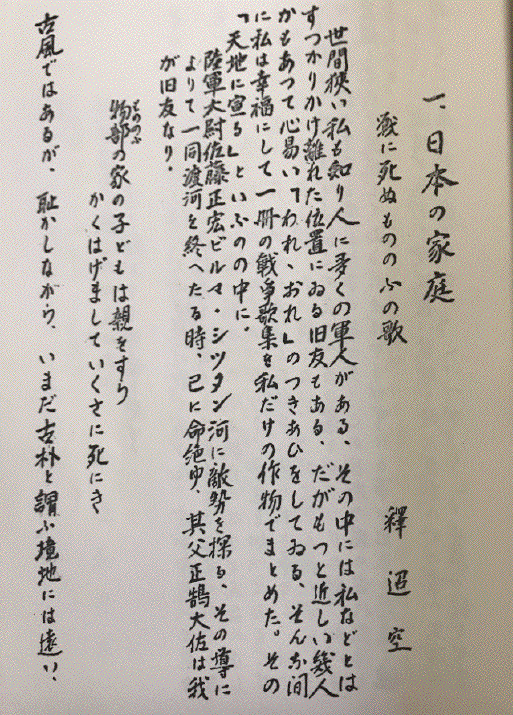 一、日本の家庭
戦に死ぬもののふの歌
釋迢空
世間狭い私も知り人に多くの軍人がある、その中には私などとは
すつかりかけ離れた位置にゐる旧友もある、だがもつと近しい幾人
かもあつて心易い「われ、おれ」のつきあひをしてゐる、そんな間
に私は幸福にして一冊の戦争歌集を私だけの作物でまとめた。その
「天地に宣る」といふのの中に。
陸軍大尉佐藤正宏ビルマ・シツタン河に敵勢を探る、その導に
よりて一同渡河を終へたる時、已に命絶ゆ、其父正鵠大佐は我
が旧友なり。
もののふ
物部の家の子どもは親をすら
かくはげましていくさに死にき
古風ではあるが、恥かしながら、いまだ古朴と謂ふ境地には遠い、